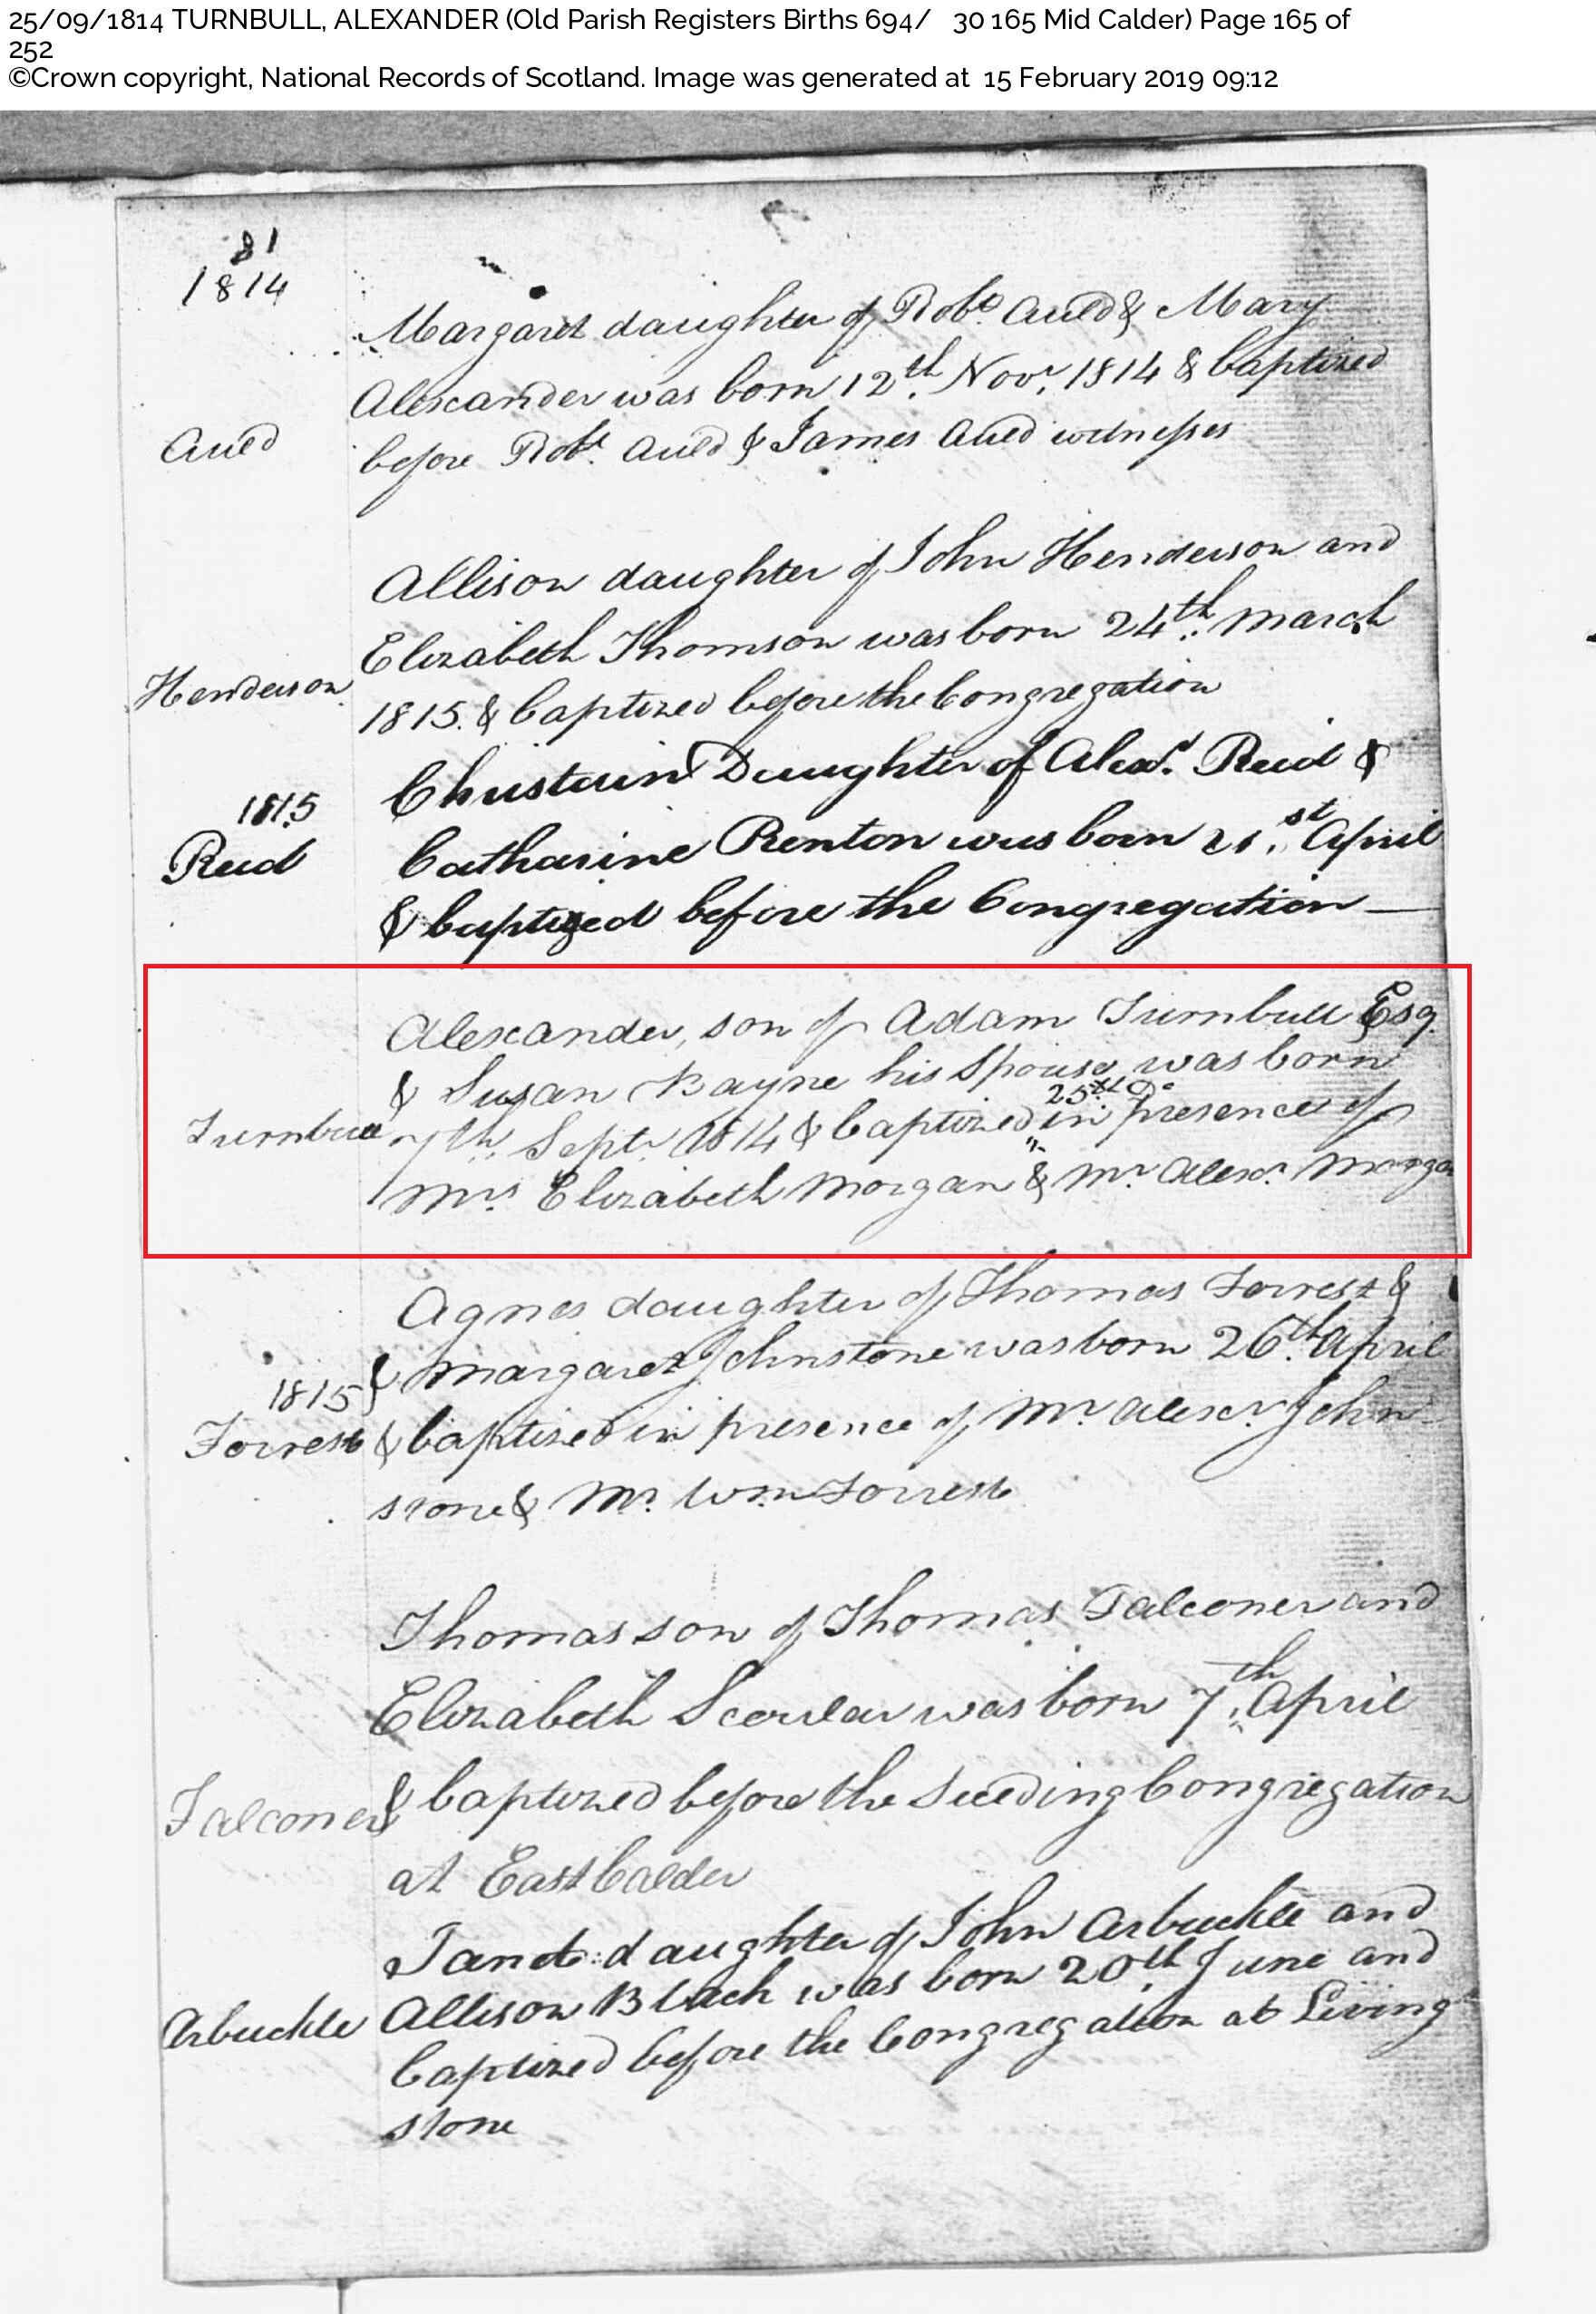 25/09/1814 TURNBULL, ALEXANDER (Old Parish Registers Births 694/ 30 165 Mid Calder) Page 165 of
252
©Crown copyright, National Records of Scotland. Image was generated at 15 February 2019 09:12
81
1814
Margaret daughter of Robt. Auld & Mary
Alexander was born 12th. Novr. 1814 & baptized
Auld before Robt. Auld & James Auld witnesses
Allison daughter of John Henderson and
Elizabeth Thomson was born 24th. March
Henderson 1815. & baptized before the Congregation
Christain Daughter of Alexr. Reid &
1815
Reid Catharine Renton was born 21.st April
& baptized before the Congregation
Alexander, son of Adam Turnbull Esq.
& Susan Bayne his Spouse was born
25th Do
Turnbull 7th. Septr. 1814 & baptized in presence of
Mrs. Elizabeth Morgan & Mr. Alexr. Morga
Agnes daughter of Thomas Forrest &
1815 } Margaret Johnstone was born 26th. April
Forrest & baptized in presence of Mr. Alexr. John-
stone & Mr. Wm. Forrest
Thomas son of Thomas Falconer and
Elizabeth Scoular was born 7th. April
Falconer & baptized before the Seceding Congregation
at East Calder
Janet daughter of John Arbuckle and
Arbuckle Allison Black was born 20th. June and
baptized before the Congregation at Living
stone